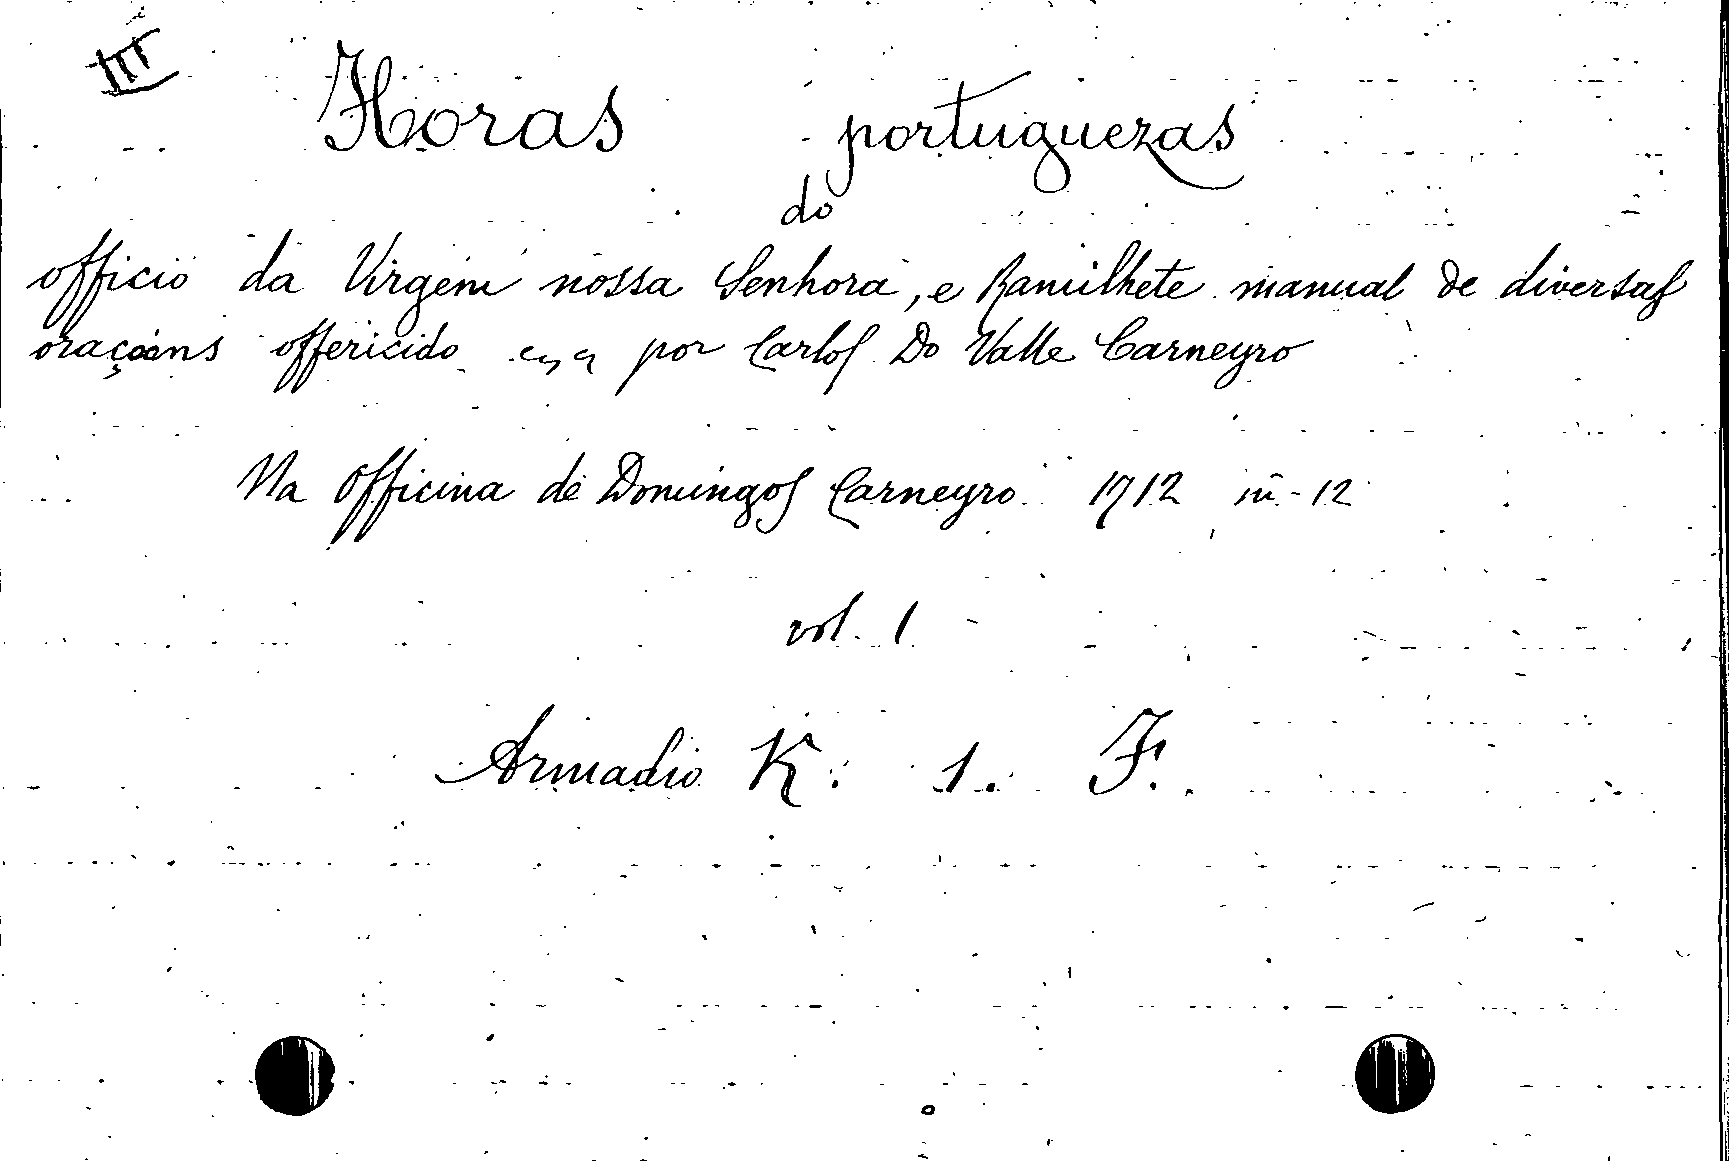 III
Horas portuguezas
do
officio da Virgem nossa Senhora, e Ramilhete manual de diversas
oraçoens offericido por Carlos Do Valle Carneyro
Na Officina de Domingos Carneyro 1712 in-12
vol. 1
Armadio K. 1. F.